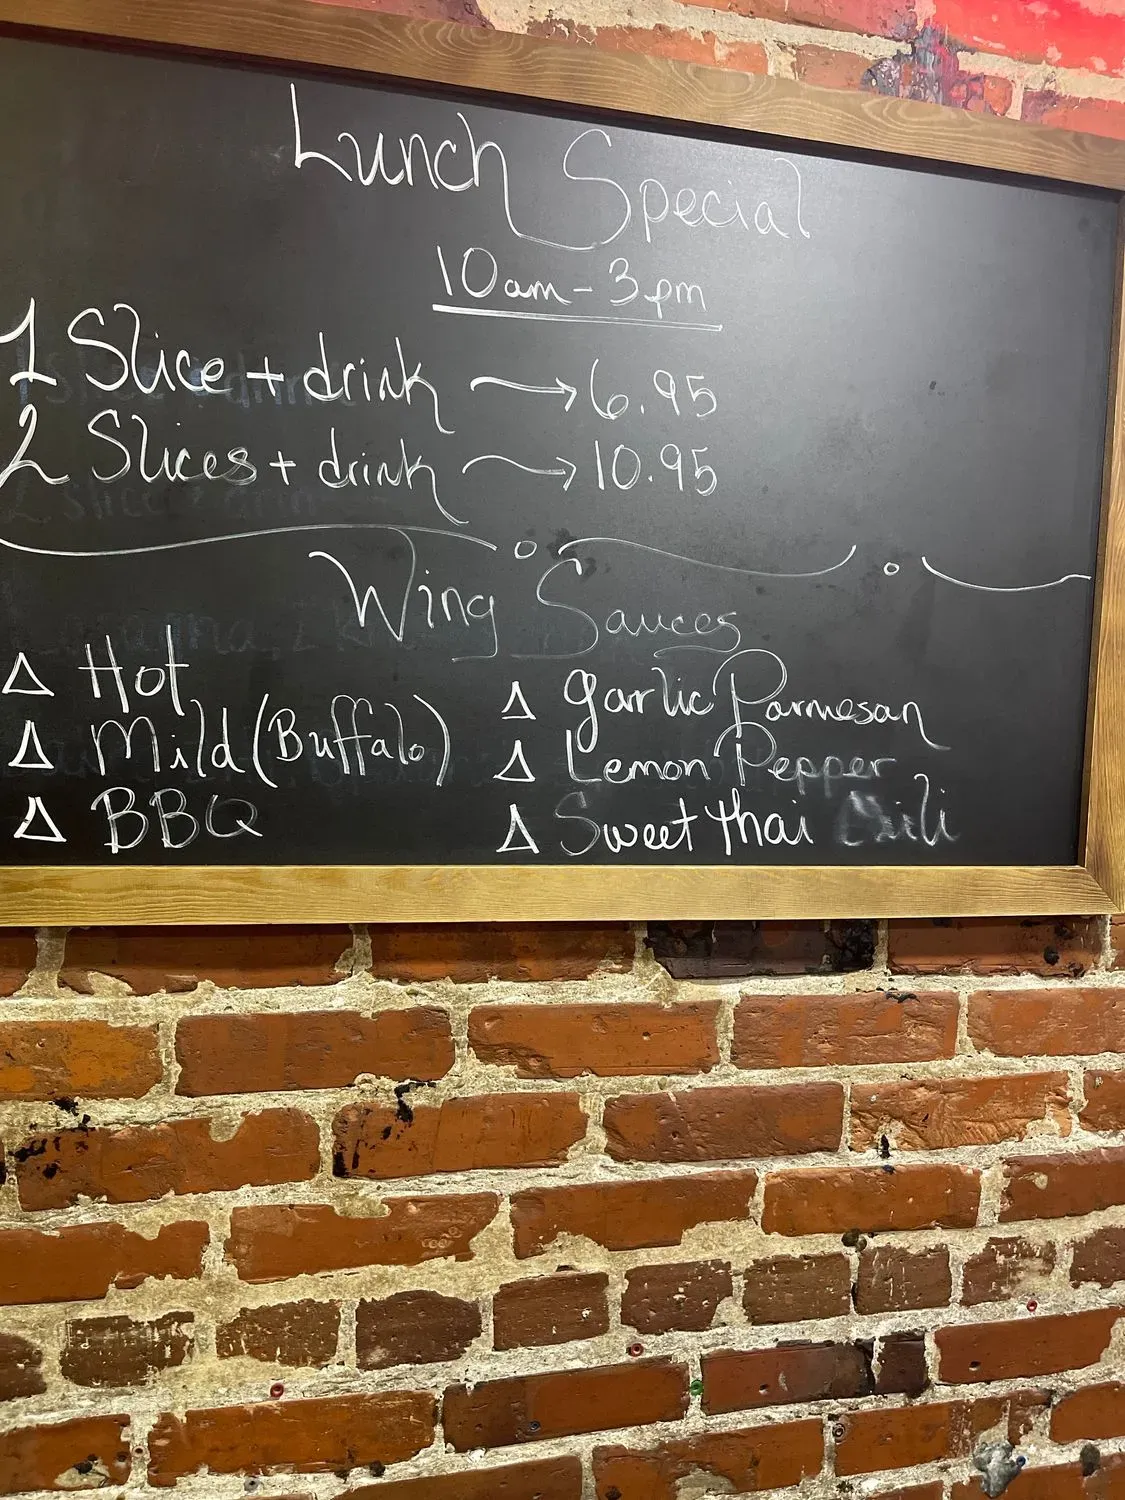 Lunch Special
10am - 3pm
1 Slice + drink → 6.95
2 Slices + drink → 10.95
Wing Sauces
△ Hot
△ Mild (Buffalo)
△ BBQ
△ garlic Parmesan
△ Lemon Pepper
△ Sweet thai Chili